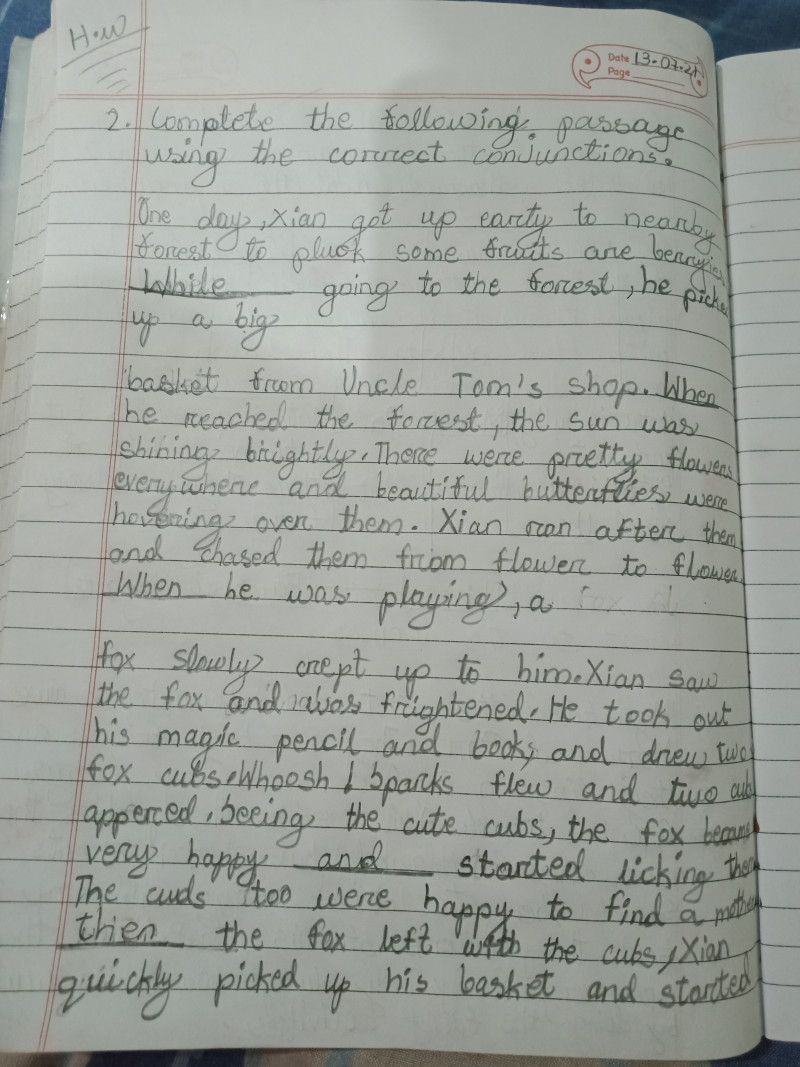 H.W
Date 13-07-21
Page
2. Complete the following passage
using the correct conjunctions.
One day, Xian got up earty to nearby
forest to pluck some fruits are berryies
While going to the forrest, he picke
up a big
basket from Uncle Tom's shop. When
he reached the forrest, the sun was
shining brightly. There were pretty flowers
everywhere and beautiful butterflies were
hovering over them. Xian ran after them
and chased them from flower to flower
When he was playing, a
fox slowly crept up to him. Xian saw
the fox and was frightened. He took out
his magic pencil and book, and drew two
fox cubs. Whoosh! Sparks flew and two cub
apperced. Seeing the cute cubs, the fox became
very happy and started licking them
The cuds too were happy to find a mother
thien the fox left with the cubs, Xian
quickly picked up his basket and started